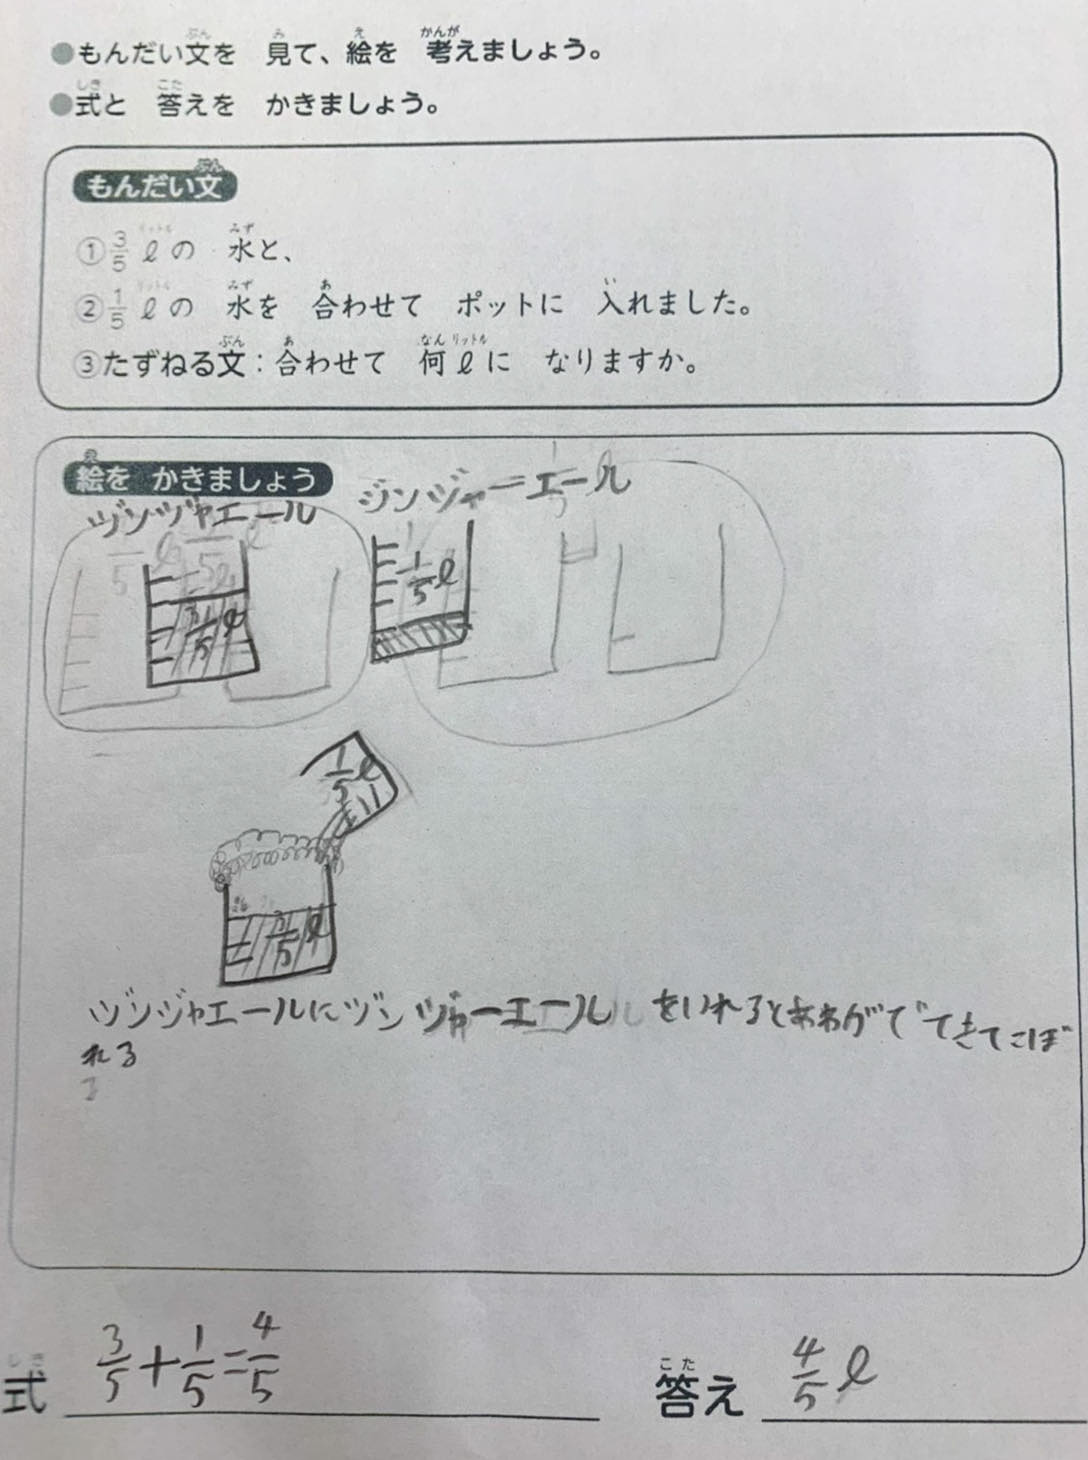 ●もんだい文を 見て、絵を 考えましょう。
●式と 答えを かきましょう。
もんだい文
①3/5 ℓの 水と、
②1/5 ℓの 水を 合わせて ポットに 入れました。
③たずねる文：合わせて 何ℓに なりますか。
絵を かきましょう
ジンジャーエール
ヅンヅャエール
1/5 ℓ
3/5 ℓ
1/5 ℓ
3/5 ℓ
ヅンジャエールにヅンヅャーエールをいれるとあわがでてきてこぼ
れる
式 3/5+1/5=4/5
答え 4/5 ℓ